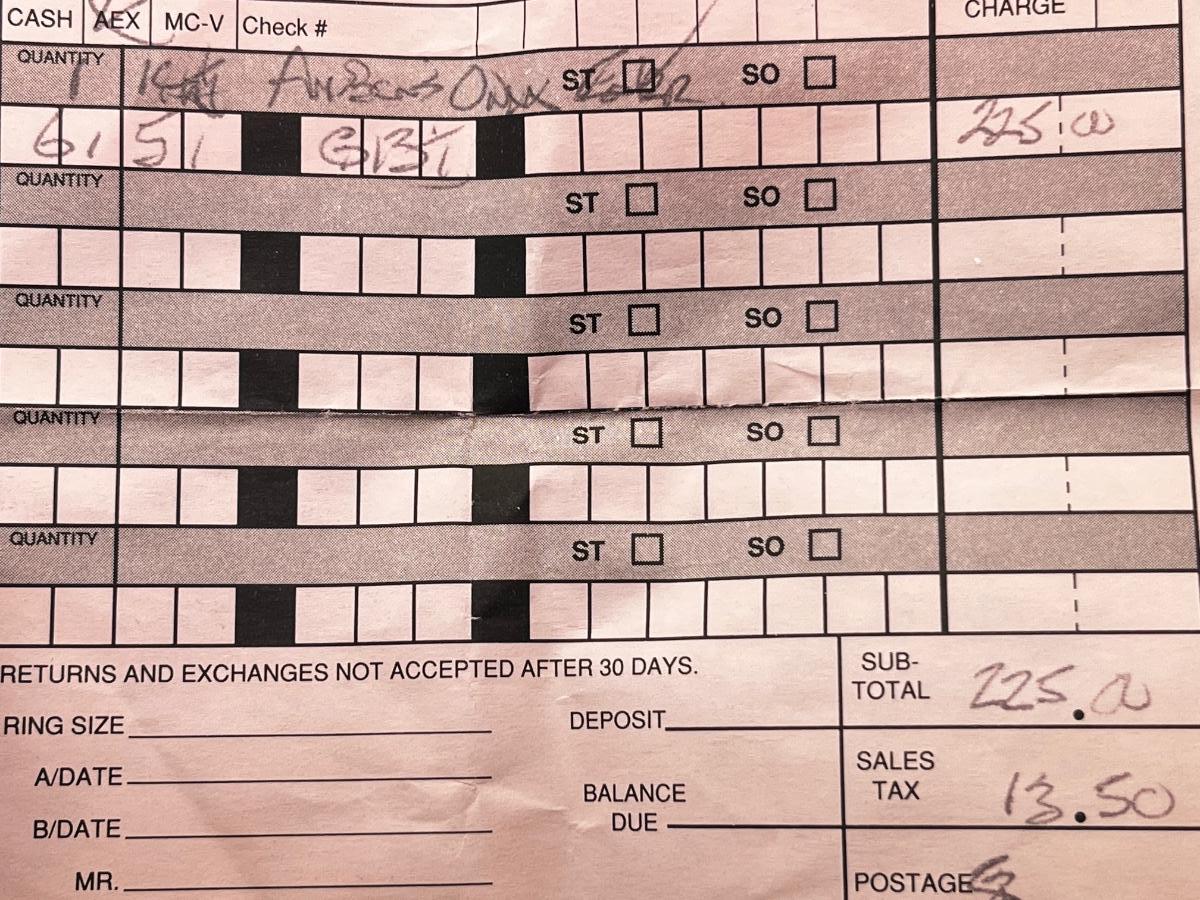 CASH AEX MC-V Check # CHARGE
QUANTITY 1 ONYX ST SO
6 1 5 1 G 13 225 00
QUANTITY ST SO
QUANTITY ST SO
QUANTITY ST SO
QUANTITY ST SO
RETURNS AND EXCHANGES NOT ACCEPTED AFTER 30 DAYS.
SUB-TOTAL 225.00
RING SIZE DEPOSIT
A/DATE
SALES TAX 13.50
BALANCE DUE
B/DATE
MR.
POSTAGE